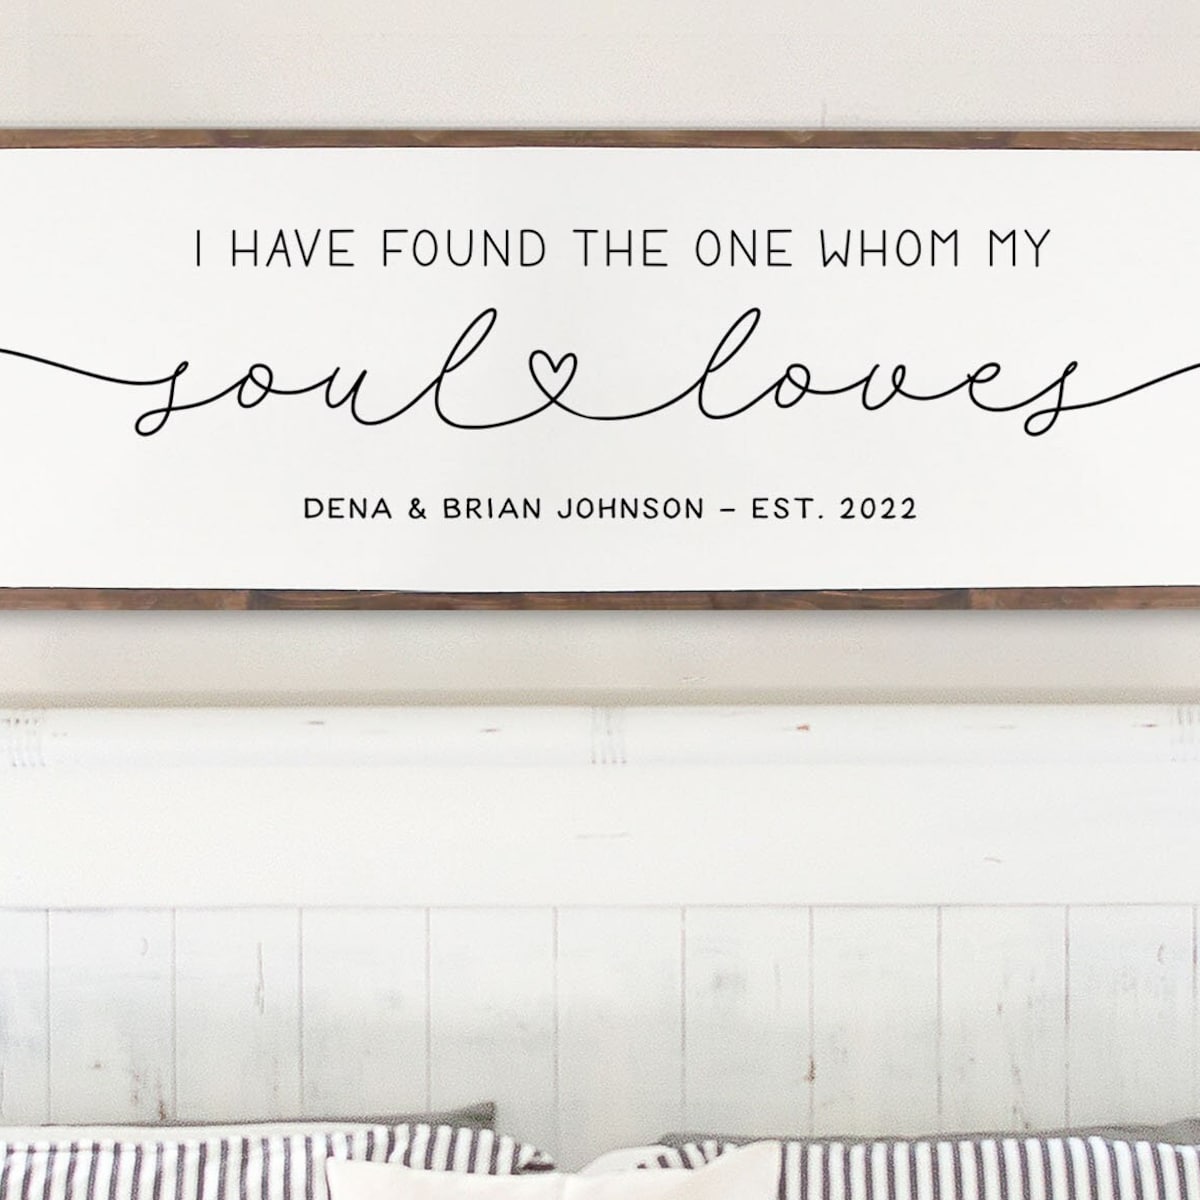 I HAVE FOUND THE ONE WHOM MY
soul loves
DENA & BRIAN JOHNSON – EST. 2022